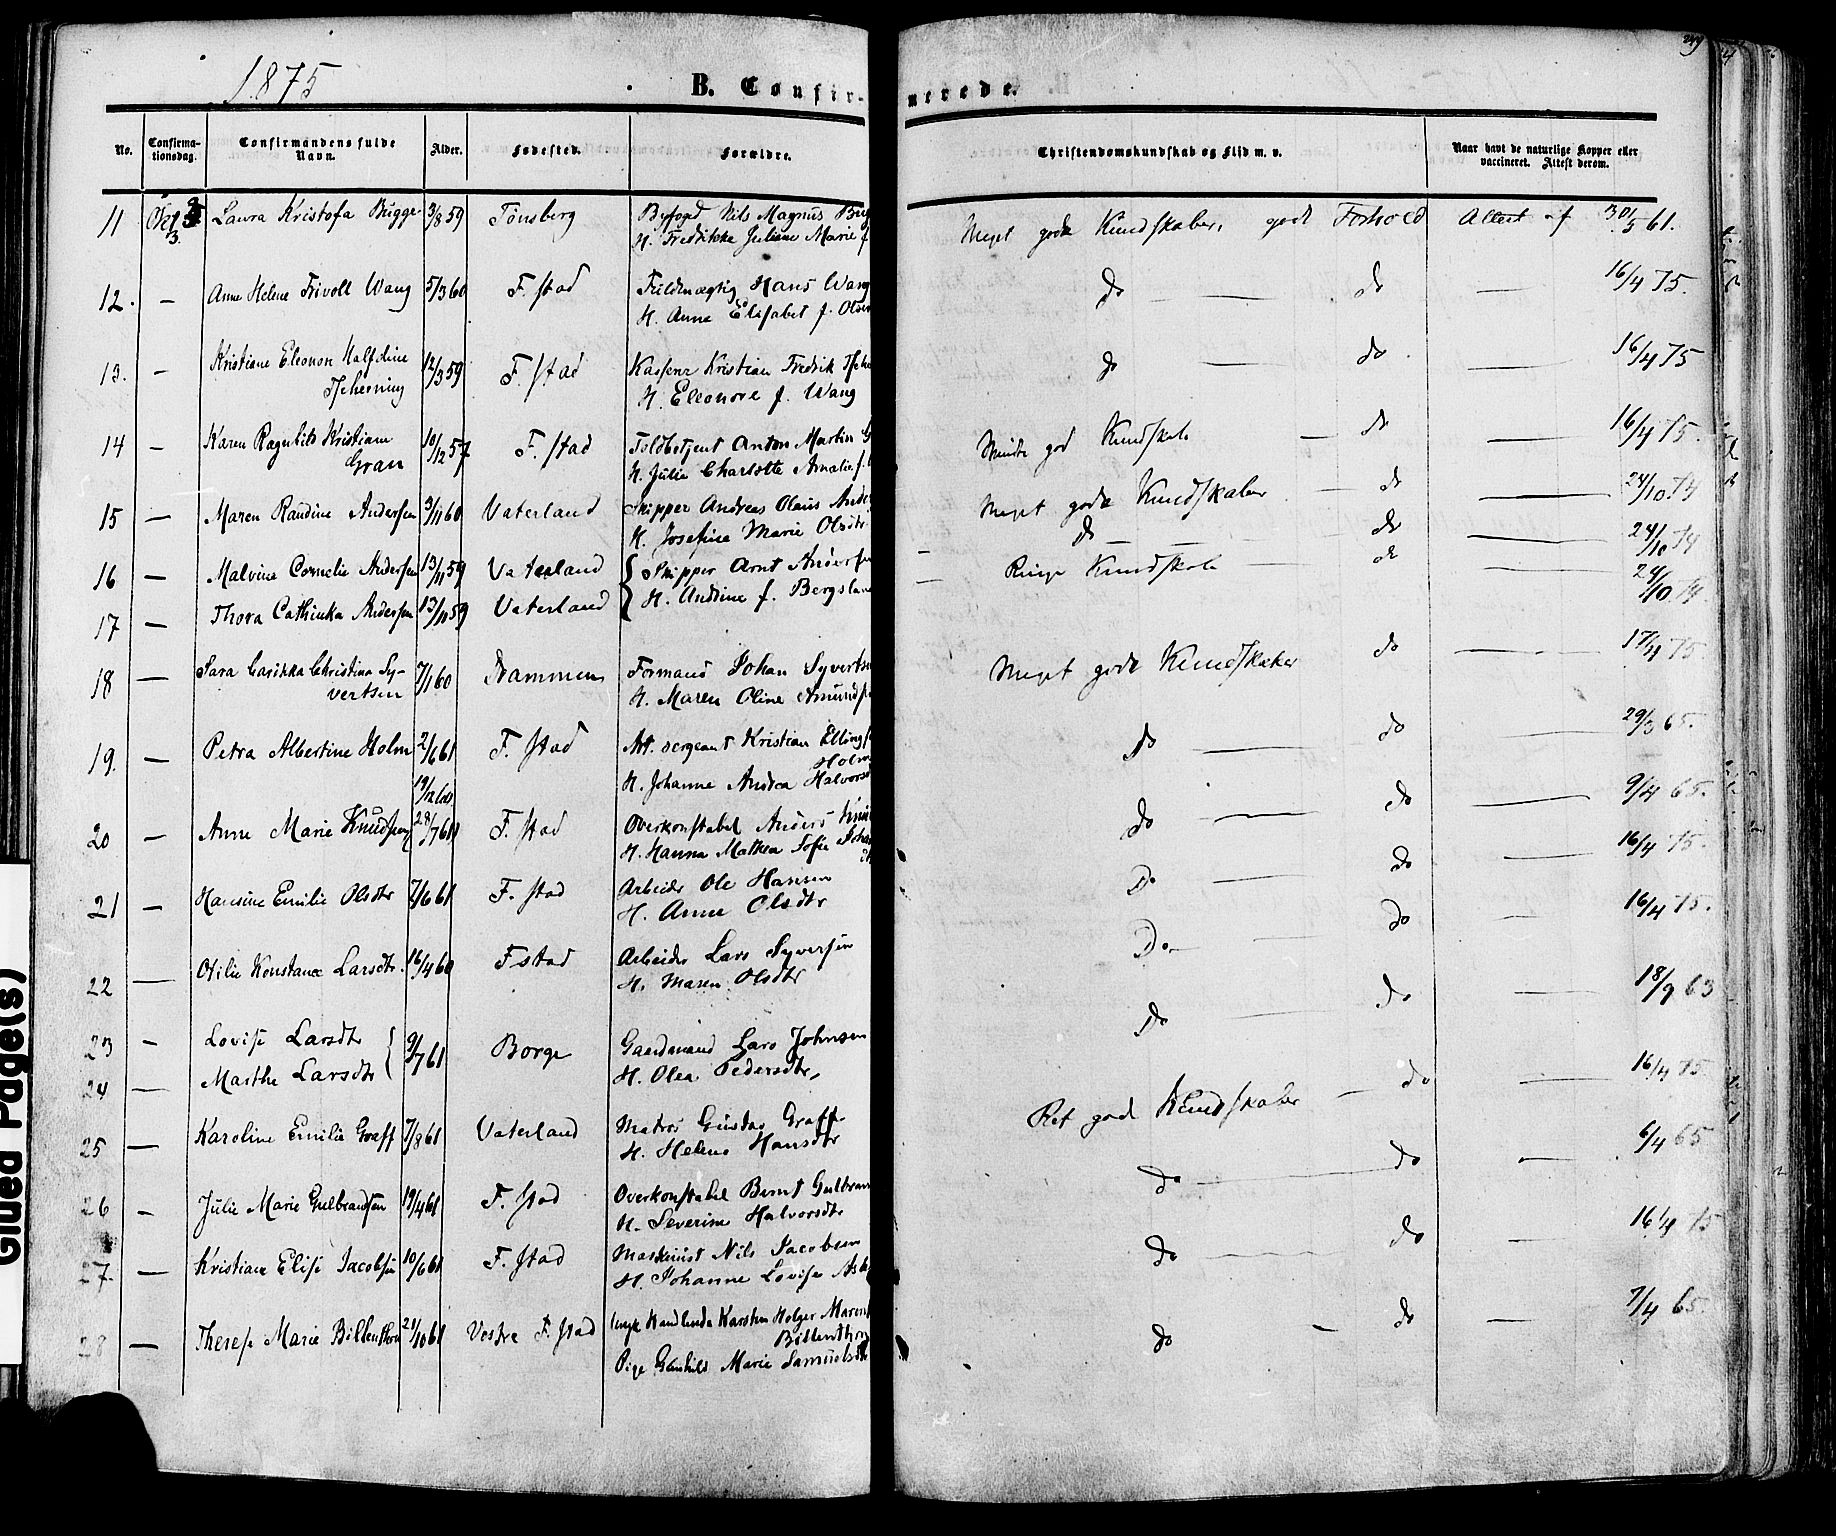 1875
B. Confir-
merede.
249
No.
Confirma-
tionsdag.
Confirmandens fulde
Navn.
Alder.
Fødested.
Forældre.
Christendomskundskab og Flid m. v.
Naar havt de naturlige Kopper eller
vaccineret. Attest derom.
11 Laura Kristofa Bugge 3/8 59 Tønsberg Byfoged Nils Magnus Bug
H. Fredrikke Juliane Marie f.
Meget gode Kundskaber, godt Forhold Attest af 30/5 61.
12. — Anne Helene Trivoll Wang 5/3 60 F. stad Fuldmægtig Hans Wang
H. Anne Elisabet f. Olsen
do — do — 16/4 75.
13. — Kristiane Eleonore Halfdine 12/3 59 F. stad Kasserer Kristian Fredrik Tsche
Tscherning H. Eleonore f. Wang
do — do — 16/4 75
14 — Karen Ragnhild Kristiane 10/12 57 F. stad Toldbetjent Anton Martin G
Gran H. Julie Charlotte Amalie f.
god Kundskab — do — 16/4 75.
15 — Maren Randine Andersen 3/11 60 Vaterland Skipper Andreas Olaus Ander
H. Josefine Marie Olsdtr
Meget gode Kundskaber — do — 24/10 74
16 — Malvine Cornelie Andersen 13/11 59 Vaterland { Skipper Arnt Andersen
do — do — 24/10 74
17 — Thora Cathinka Andersen 13/11 59 Vaterland H. Andrine f. Bergsland
Ringe Kundskab — do — 24/10 74
18 — Sara Christine Sy- 7/1 60 Drammen Formand Johan Syverts
vertsen H. Maren Oline Amunds
Meget gode Kundskaber do — 17/4 75
19. — Petra Albertine Holm 2/6 61 F. stad Art. sergeant Kristian Ellings
Holm
H. Johanne Andrea Halvorsd
do — do — 29/3 65.
20 — Anne Marie Knudsen 28/7 61 F. stad Overkonstabel Anders Knud
H. Hanna Mathea Sofie Johan
do — do — 9/4 65.
21 — Hansine Emilie Olsdtr 7/6 61 F. stad Arbeider Ole Hansen
H. Anne Olsdtr
Do — do — 16/4 75.
22 — Otilie Konstance Larsdtr. 16/4 60 Fstad Arbeider Lars Syversen
H. Maren Olsdtr
Do — do — 16/4 75.
23 — Lovise Larsdtr } 9/7 61 Borge Gaardmand Lars Johnsen
24 — Marthe Larsdtr H. Olea Pedersdtr
Do do — 18/9 63
25 — Karoline Emilie Graff 7/8 61 Vaterland Matros Gustav Graff
H. Helene Hansdtr
Ret god Kundskaber — do — 16/4 75
26 — Julie Marie Gulbrandsen 19/4 61 F. stad Overkonstabel Bernt Gulbran
H. Severine Halvorsdtr
do — do — 6/4 65
27. — Kristiane Elise Jacobsen 10/6 61 F. stad Maskinist Nils Jacobsen
H. Johanne Lovise
do — do — 16/4 75
28 — Therese Marie Billenthon 21/10 61 Vestre F. stad Karsten Holger
Billenthon
Pige Gunhild Marie Samuelsdtr
do — do — 7/4 65.
Glued Page(s)